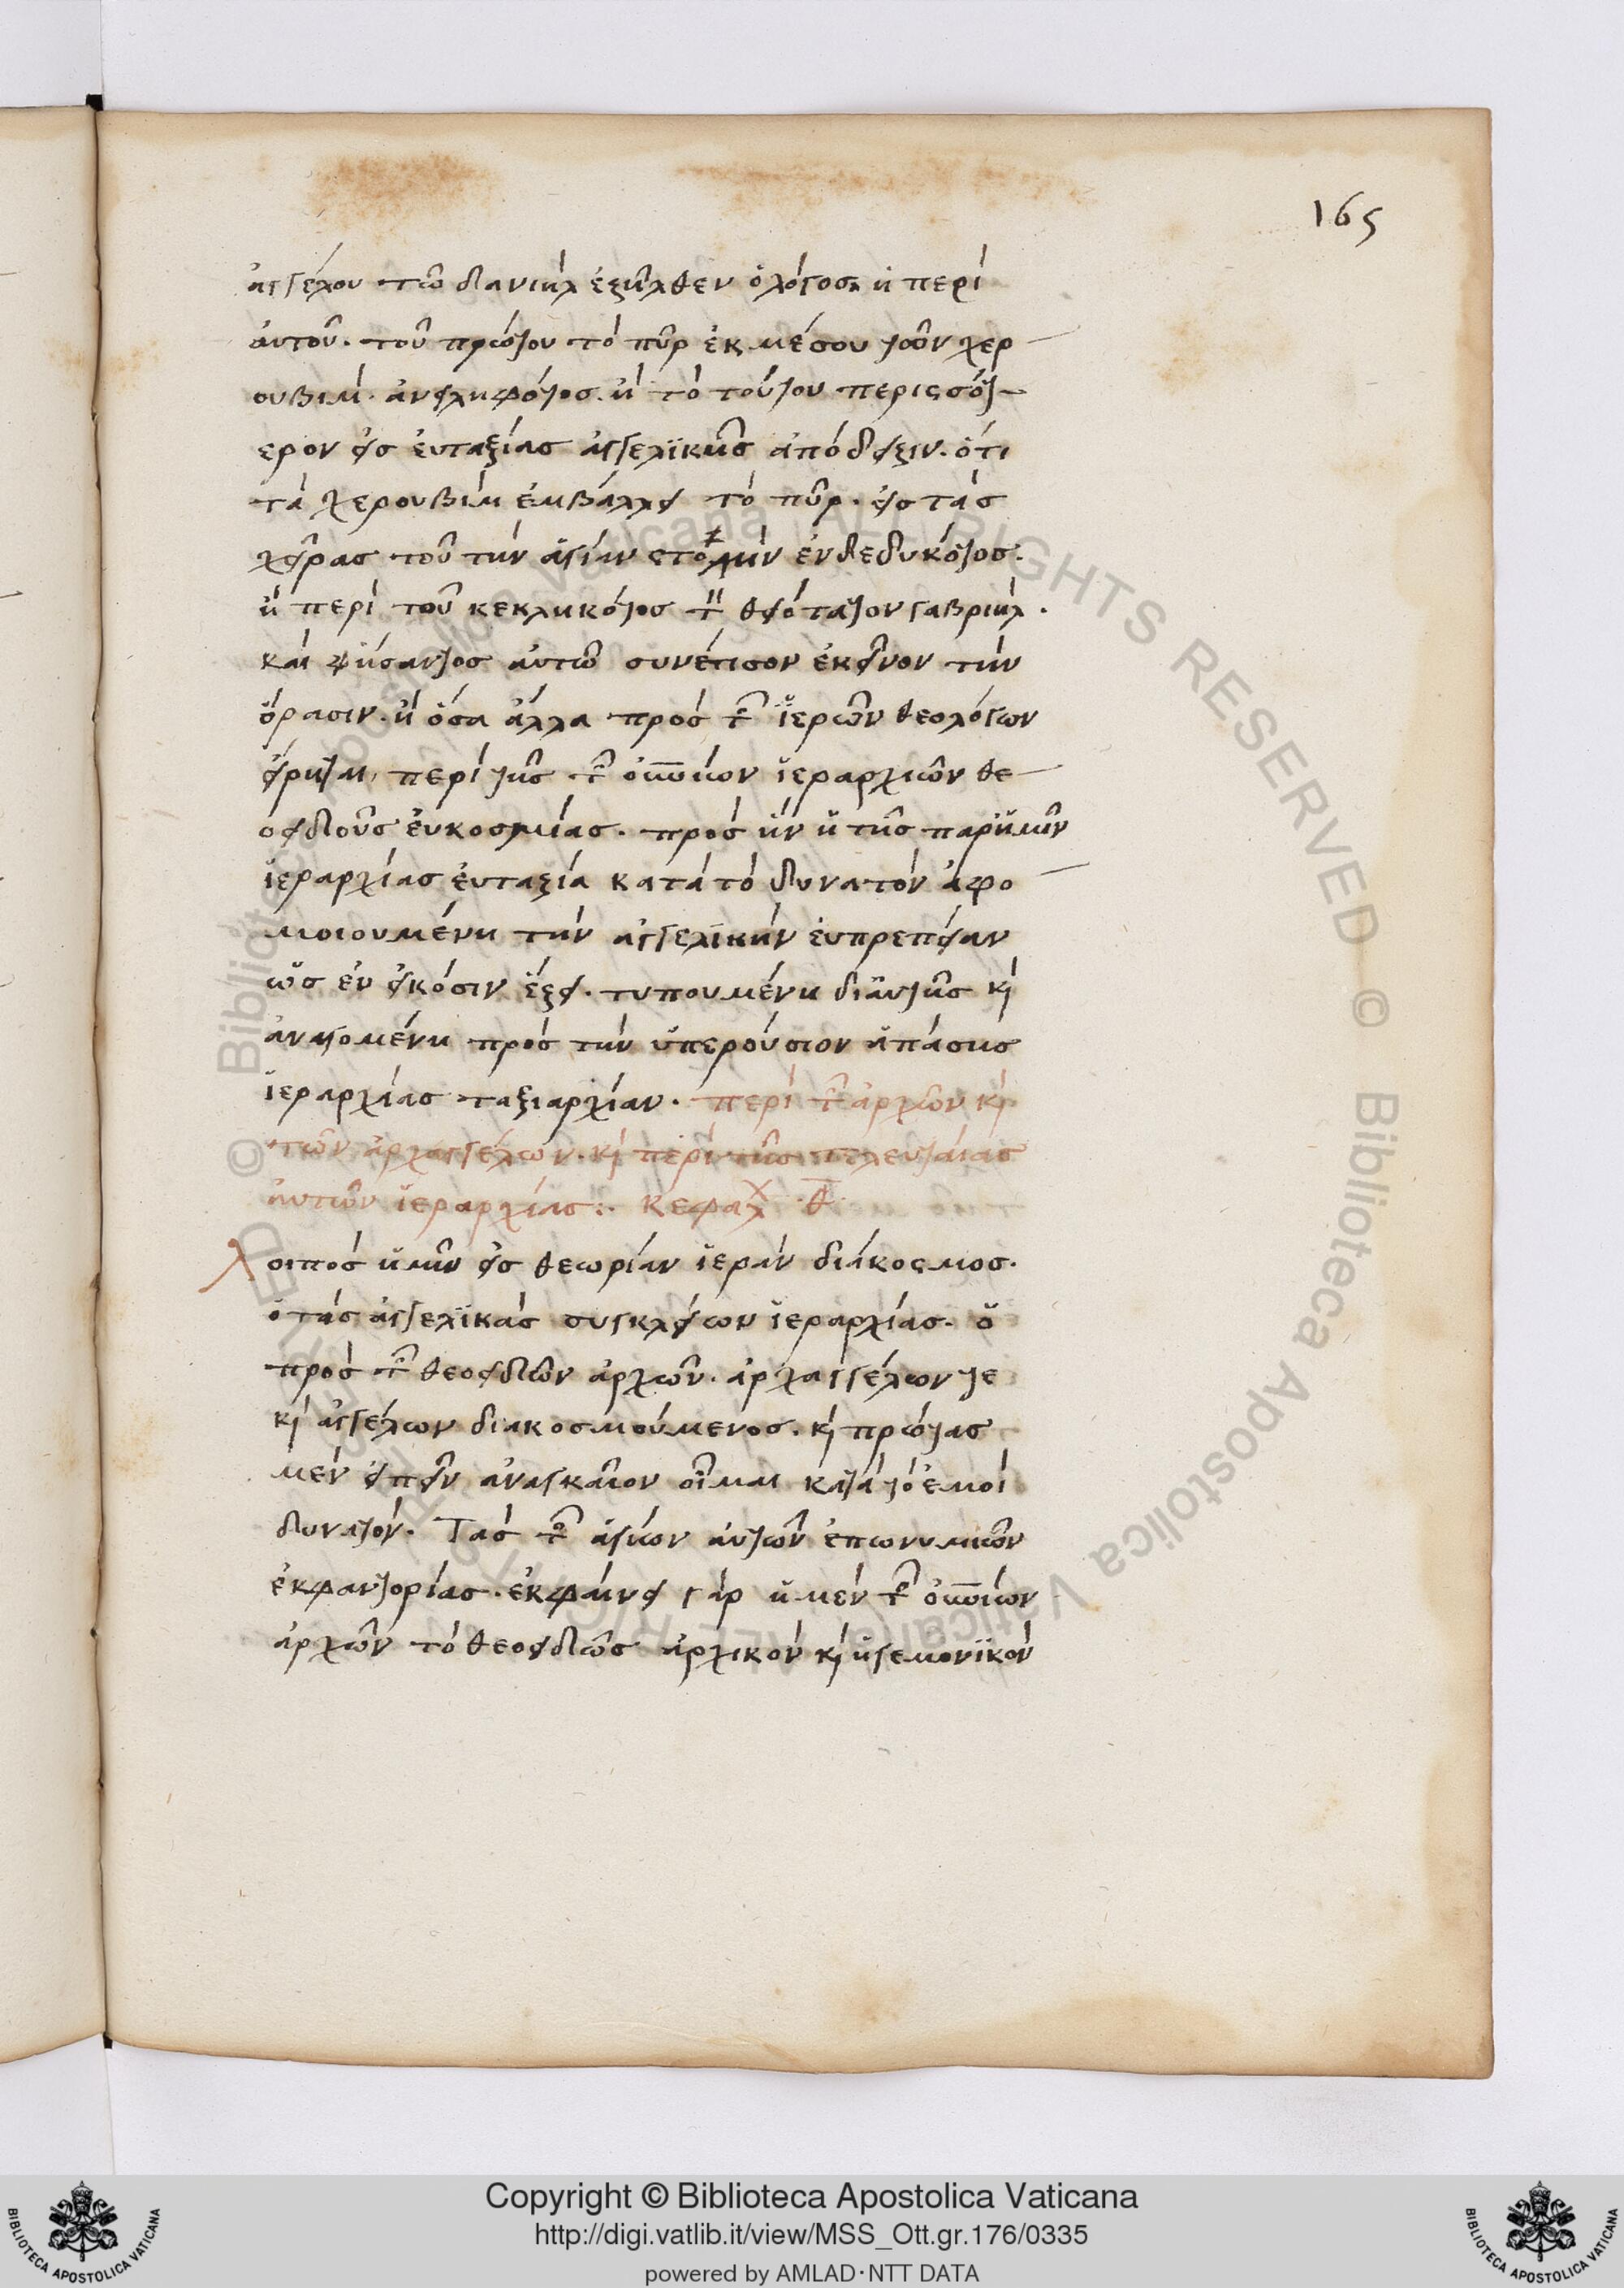 165
ἀγγέλου τῶ δανιὴλ ἐξῆλθεν ὁ λόγος· ἢ περὶ
ἀυτοῦ. τοῦ πρώτου τὸ πῦρ ἐκ μέσου τῶν χερ
ουβιμ. ἀνειληφότος. ἢ τὸ τούτου περισσότ
ερον εἰς ἐυταξίας ἀγγελϊκῆς ἀπόδειξιν. ὅτι
τὰ χερουβὶμ ἐμβάλλει τὸ πῦρ. εἰς τὰς
χεῖρας τοῦ τὴν ἁγίαν στολὴν ἐνδεδυκότος.
ἢ περὶ τοῦ κεκληκότος τὸν θειότατον γαβριὴλ.
καὶ φήσαντος ἀυτῶ συνέτισον ἐκεῖνον τὴν
ὅρασιν. ἢ ὅσα ἄλλα πρὸς τῶν ϊερῶν θεολόγων
εἴρηται, περὶ τῆς τῶν οὐρανίων ϊεραρχιῶν θε
οειδοῦς ἐυκοσμίας. πρὸς ἣν ἡ τῆς παρ ἡμῖν
ϊεραρχίας ἐυταξία κατὰ τὸ δυνατὸν ἀφο
μοιουμένη τὴν ἀγγελϊκὴν ἐυπρέπειαν
ὡς ἐν εἰκόσιν ἕξει. τυπουμένη δι ἀυτῆς κὶ
ἀναγομένη πρὸς τὴν ὑπερούσιον ἁπάσης
ϊεραρχίας ταξιαρχίαν. περὶ τῶν ἀρχῶν κὶ
τῶν ἀρχαγγέλων. κὶ περὶ τῆς τελευταίας
ἀυτῶν ϊεραρχίας:. κεφαλ .θ.
λοιπὸς ἡμῖν εἰς θεωρίαν ϊερὰν διάκοσμος.
ὁ τὰς ἀγγελϊκὰς συγκλείων ϊεραρχίας. ὁ
πρὸς τῶν θεοειδῶν ἀρχῶν. ἀρχαγγέλων τε
κὶ ἀγγέλων διακοσμούμενος. κὶ πρώτας
μὲν εἰπεῖν ἀναγκαῖον οἶμαι κατὰ τὸ ἐμοὶ
δυνατὸν. Τὰς τῶν ἁγίων ἀυτῶν ἐπωνυμιῶν
ἐκφαντορίας. ἐκφαίνει γὰρ ἡ μὲν τῶν οὐρανίων
ἀρχῶν τὸ θεοειδῶς ἀρχικὸν κὶ ἡγεμονϊκὸν
© Biblioteca Apostolica Vaticana ALL RIGHTS RESERVED
Copyright © Biblioteca Apostolica Vaticana
http://digi.vatlib.it/view/MSS_Ott.gr.176/0335
powered by AMLAD·NTT DATA
BIBLIOTECA APOSTOLICA VATICANA
BIBLIOTECA APOSTOLICA VATICANA